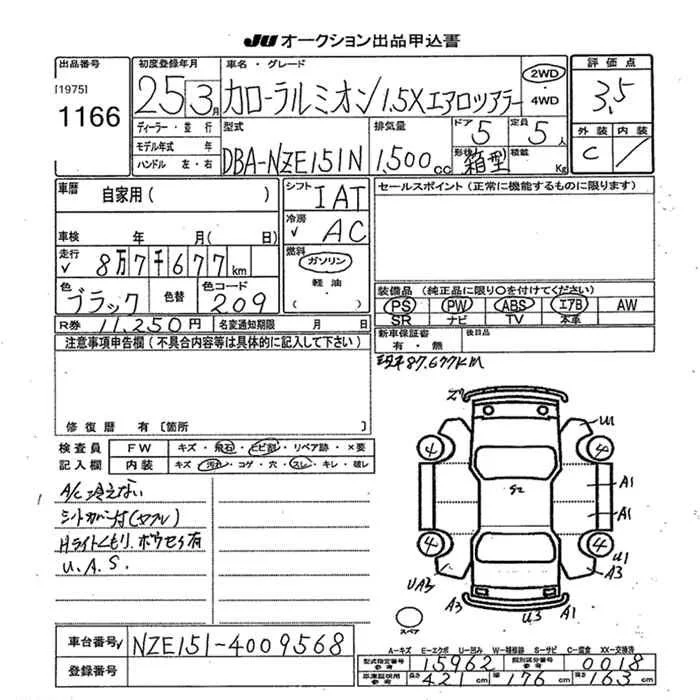 JU オークション出品申込書
出品番号
[1975]
1166
初度登録年月
25 3月
車名・グレード
カローラルミオン 1.5X エアロツアラー
2WD
・
4WD
評価点
3.5
外装 内装
C /
ディーラー・並行
モデル年式 年
ハンドル 左・右
型式
DBA-NZE151N
排気量
1,500cc
ドア 5
定員 5人
形状 箱型
積載 Kg
車暦
自家用( )
車検 年 月( 日)
走行 8万7千677km
色 ブラック
色替
色コード 209
シフト IAT
冷房 AC
燃料
ガソリン
軽油
・( )
セールスポイント(正常に機能するものに限ります)
装備品 (純正品に限り○を付けてください)
PS PW ABS エアB AW
SR ナビ TV 本革
新車保証書 後日品
有・無
R券 11,250円 名変通知期限 月 日
87.677KM
注意事項申告欄(不具合内容等は具体的に記入して下さい)
修復暦 有〔箇所 〕
検査員
記入欄
FW キズ・飛石・ヒビ割・リペア跡・×要
内装 キズ・汚れ・コゲ・穴・スレ・キレ・破レ
A/C 冷えない
シートカバー付(
Hライトくもり. ボウセイ有
U.A.S.
U1
4 4
A1
A1
4 4
U1
UA3 A3
A3 U3 A1
スペア
車台番号 NZE151-4009568
登録番号
A-キズ E-エクボ U-凹み W-補修跡 S-サビ C-腐食 XX-交換済
型式指定番号 参考 15962 類別区分番号 参考 0018
参考 長さ 421cm 幅 176cm 高さ 163cm